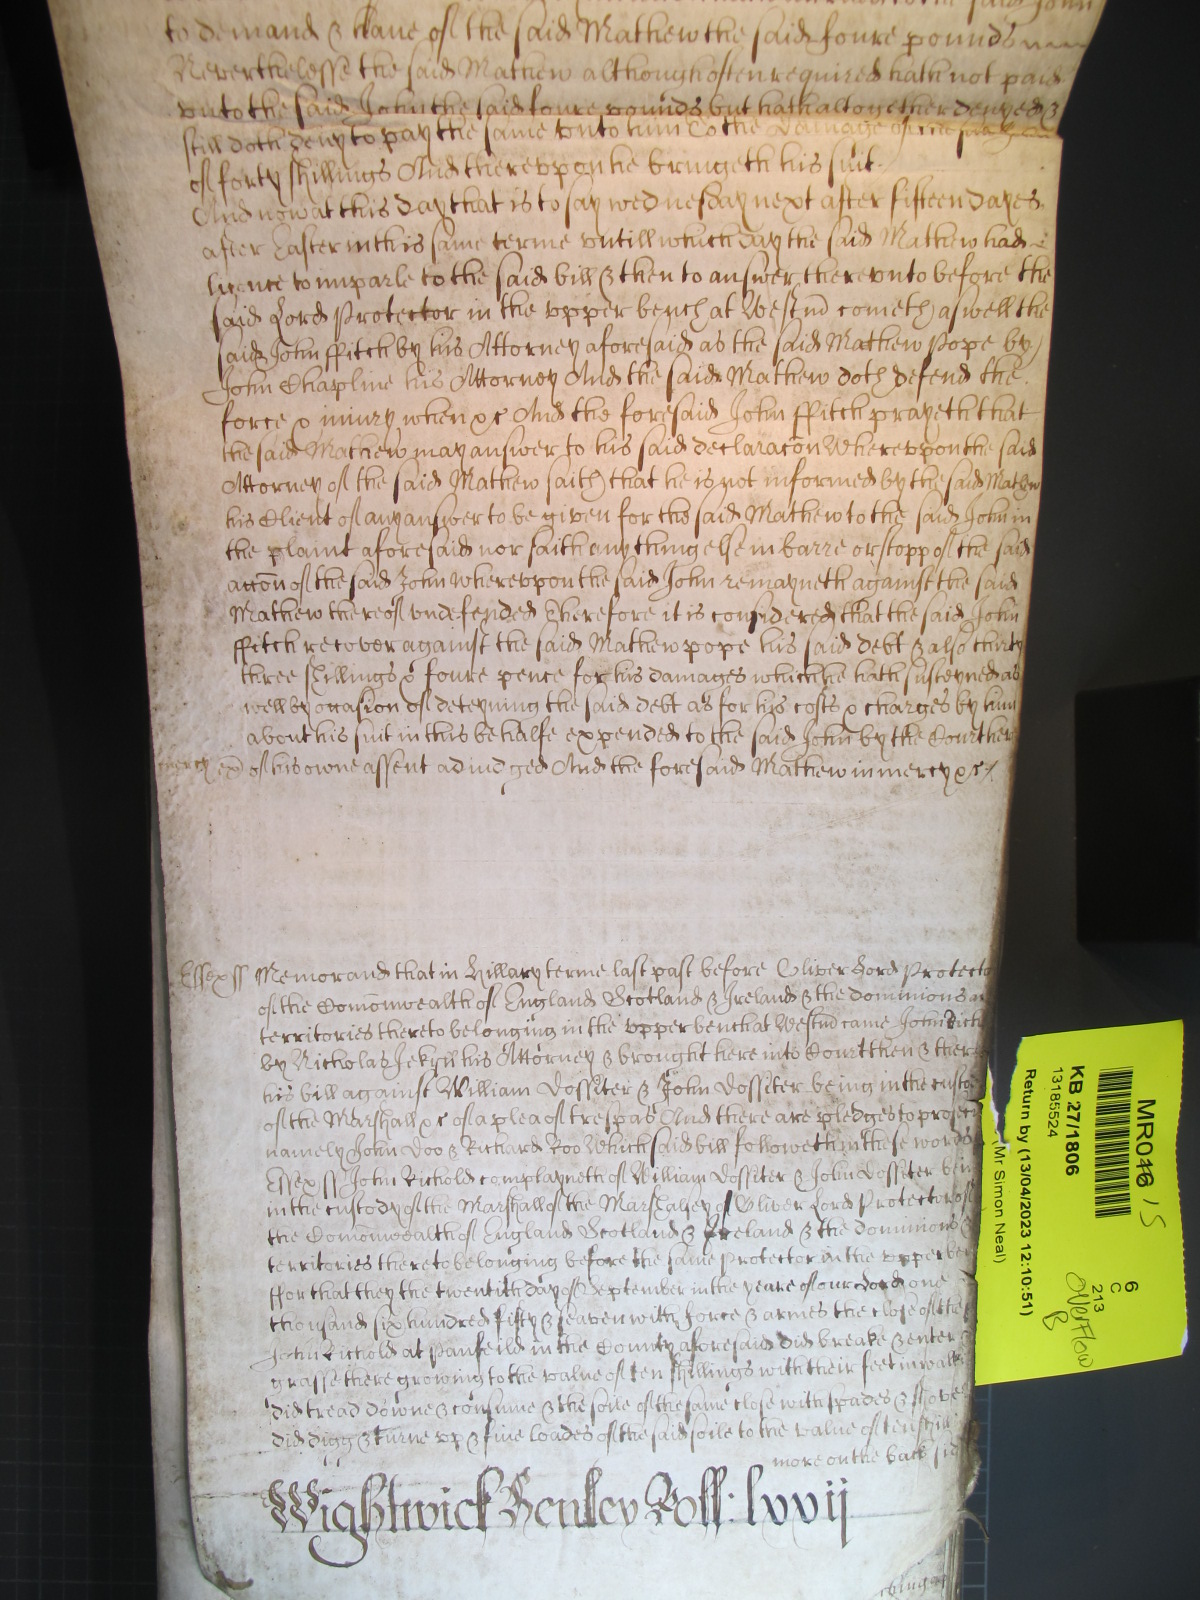 said John
to demand & have of the said Mathew the said foure pounds
Neverthelesse the said Mathew although often required hath not paid
unto the said John the said foure pounds but hath altogether denyed &
still doth deny to pay the same unto him To the damage of the said John
of forty shillings And thereuppon he bringeth his suit.
And now at this day that is to say wednesday next after fifteen dayes
after Easter in this same terme untill which day the said Mathew had
licence to imparle to the said bill & then to answer thereunto before the
said Lord Protector in the upper bench at Westm̄ cometh aswell the
said John ffitch by his Attorney aforesaid as the said Mathew Pope by
John Chapline his Attorney And the said Mathew doth defend the
force & iniury when &c And the foresaid John ffitch prayeth that
the said Mathew may answer to his said declaracōn Whereuppon the said
Attorney of the said Mathew saith that he is not informed by the said Mathew
his Client of any answer to be given for the said Mathew to the said John in
the plaint aforesaid nor saith any thing else in barre or stopp of the said
accōn of the said John whereuppon the said John remayneth against the said
Mathew thereof undefended Therefore it is considered that the said John
ffitch recover against the said Mathew pope his said debt & also thirty
three shillings & foure pence for his damages which he hath susteyned as
well by occasion of deteyning the said debt as for his costs & charges by him
about his suit in this behalfe expended to the said John by the Court here
mercy of his owne assent adiudged And the foresaid Mathew in mercy &c
Essex ss Memorand that in Hillary terme last past before Oliver Lord Protector
of the Com̄onwealth of England Scotland & Ireland & the dominions
territories thereto belonging in the upper bench at Westm̄ came John
by Nicholas Jekyll his Attorney & brought here into Court then & there
his bill against William Dossiter & John Dossiter being in the custo
of the Marshall &c of a plea of trespas And there are pledges to prosecu
namely John Doo & Richard Roo Which said bill followeth in these words
Essex ss John Richold complayneth of William Dossiter & John Dossiter bein
in the custody of the Marshall of the Marshalsey of Oliver Lord Protector of
the Com̄onwealth of England Scotland & Ireland & the dominions &
territories thereto belonging before the same Protector in the upper ben
ffor that they the twentith day of September in the yeare of our Lord one
thousand six hundred fifty & seaven with force & armes the close of the
John Richold at Panfeild in the County aforesaid did breake & enter &
grasse there growing to the value of ten shillings with their feet in walki
did tread downe & consume & the soile of the same close with spades & shove
did digg & turne up & five loades of the said soile to the value of ten shill
more on the back sid
Wightwick Henley Roll: lxvij
MR046 / 15
KB 27/1806
13185524
Return by (13/04/2023 12:10:51)
(Mr Simon Neal)
6
C
213
OVERFLOW
B